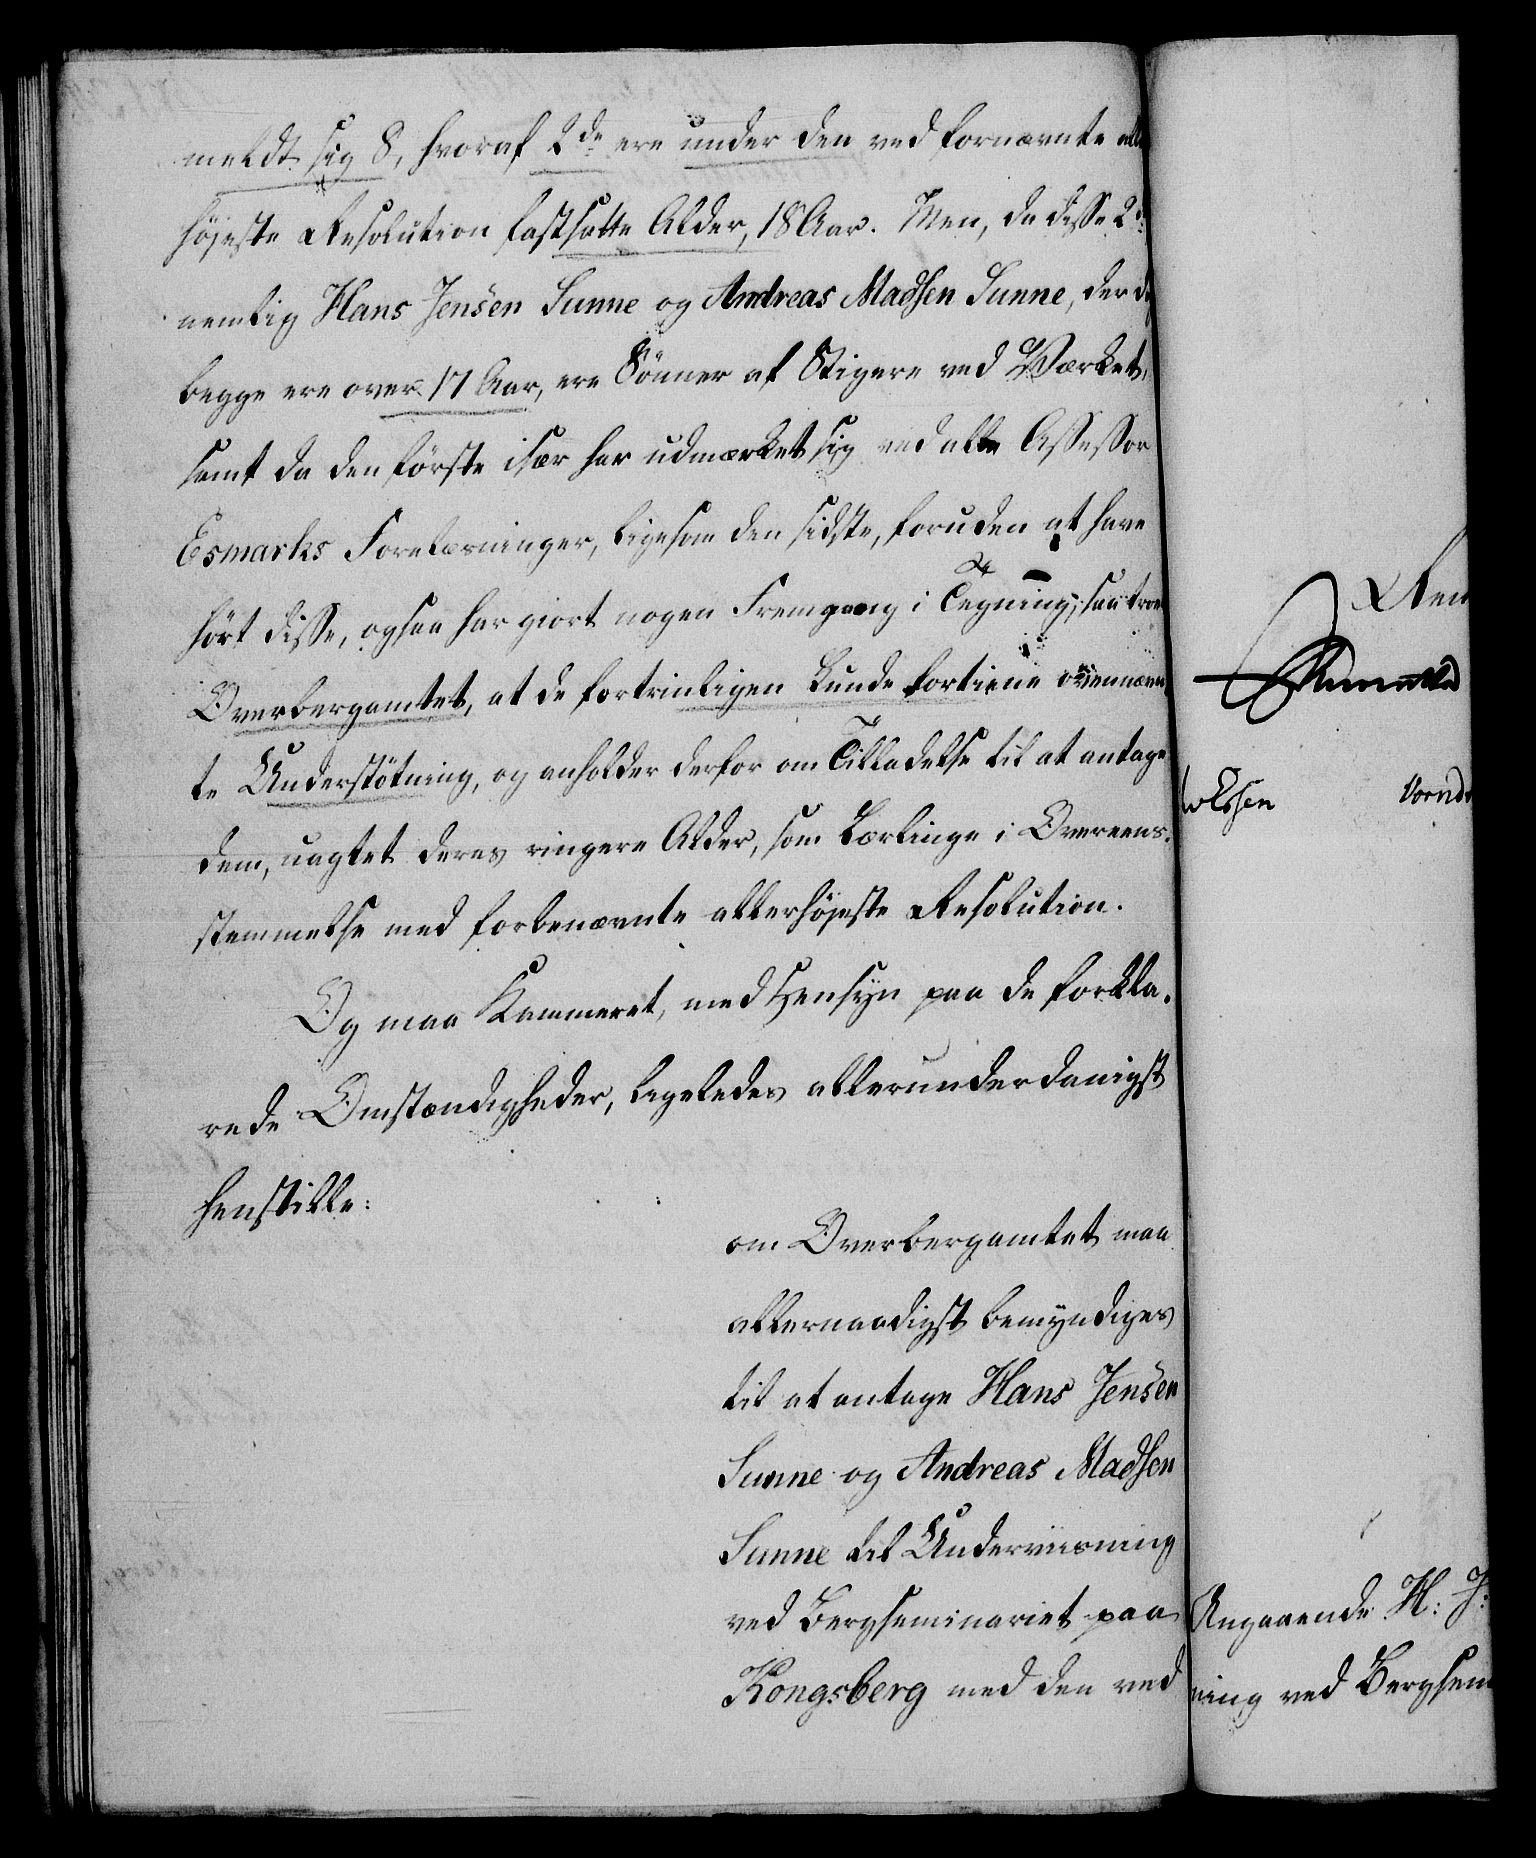 meldt sig 8, hvoraf 2de ere under den ved fornævnte aller
höjeste Resolution fastsatte Alder, 18 Aar. Men, da disse 2de
nemlig Hans Jensen Sunne og Andreas Madsen Sunne, der dog
begge ere over 17 Aar, ere Sönner af Stigere ved Værket,
samt da den förste især har udmærket sig ved alle Assessor
Esmarks Forelæsninger, ligesom den sidste, foruden at have
hört disse, ogsaa har giort nogen Fremgang i Tegning; saa troer
Overbergamtet, at de fortrinligen kunde fortiene ovennævn
te Understötning, og anholder derfor om Tilladelse til at antage
dem, uagtet deres ringere Alder, som Lærlinge i Overeens-
stemmelse med forbenævnte allerhöjeste Resolution.
Og maa Kammeret, med Hensyn paa de forkla-
rede Omstændigheder, ligeledes allerunderdanigst
henstille:
om Overbergamtet maa
allernaadigst bemyndiges
til at antage Hans Jensen
Sunne og Andreas Madsen
Sunne til Underviisning
ved Bergseminariet paa
Kongsberg med den ved
Ren
Angaaende H: J:
ning ved Bergsem